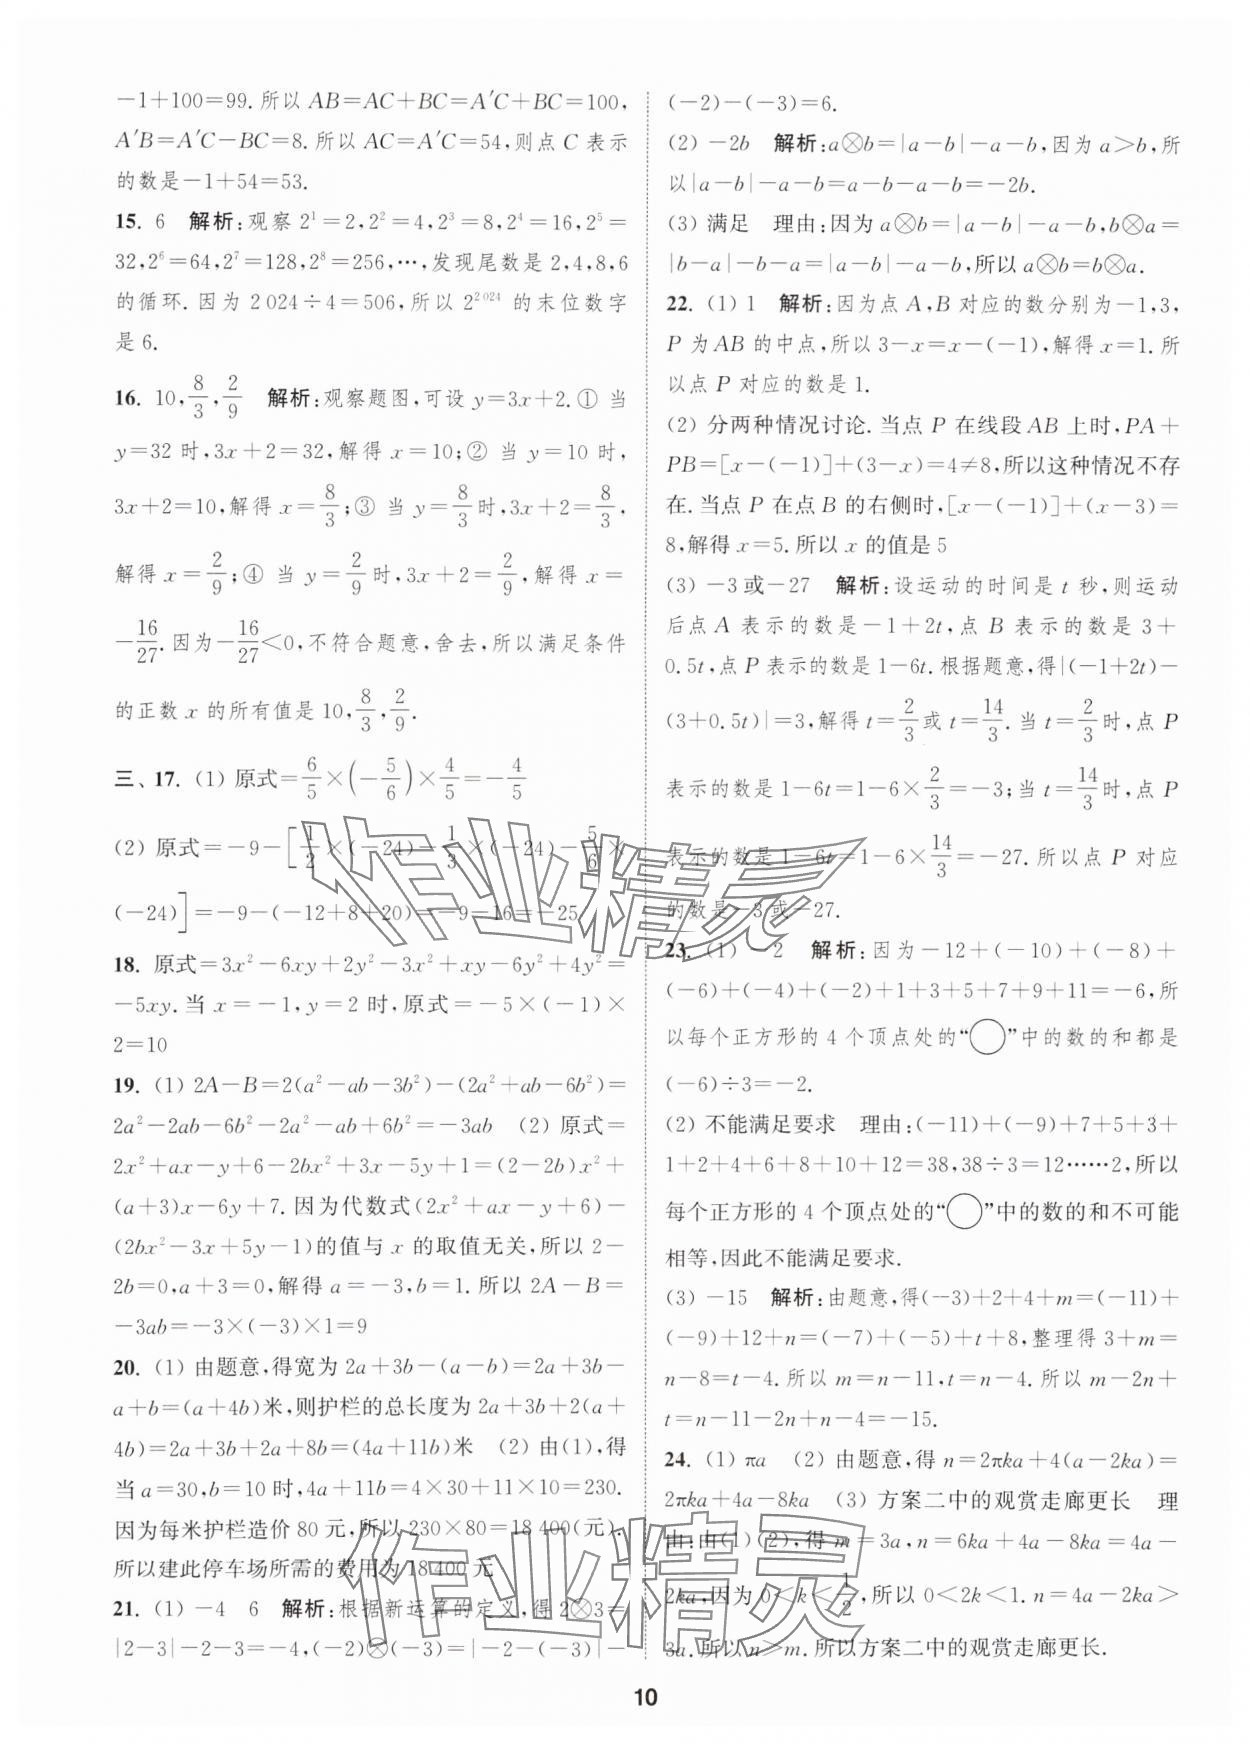 -1+100=99. 所以 AB=AC+BC=A′C+BC=100,
A′B=A′C-BC=8. 所以 AC=A′C=54, 则点 C 表示
的数是-1+54=53.
15. 6 解析:观察 2¹=2,2²=4,2³=8,2⁴=16,2⁵=
32,2⁶=64,2⁷=128,2⁸=256,…,发现尾数是 2,4,8,6
的循环. 因为 2 024÷4=506,所以 2²⁰²⁴ 的末位数字
是 6.
16. 10,8/3,2/9 解析:观察题图,可设 y=3x+2. ① 当
y=32 时,3x+2=32,解得 x=10;② 当 y=10 时,
3x+2=10,解得 x=8/3;③ 当 y=8/3时,3x+2=8/3,
解得 x=2/9;④ 当 y=2/9时,3x+2=2/9,解得 x=
-16/27. 因为-16/27<0,不符合题意,舍去,所以满足条件
的正数 x 的所有值是 10,8/3,2/9.
三、17. (1) 原式=6/5×(-5/6)×4/5=-4/5
(2) 原式=-9-[1/2×(-24)-1/3×(-24)-5/6×
(-24)]=-9-(-12+8+20)=-9-16=-25
18. 原式=3x²-6xy+2y²-3x²+xy-6y²+4y²=
-5xy. 当 x=-1,y=2 时,原式=-5×(-1)×
2=10
19. (1) 2A-B=2(a²-ab-3b²)-(2a²+ab-6b²)=
2a²-2ab-6b²-2a²-ab+6b²=-3ab (2) 原式=
2x²+ax-y+6-2bx²+3x-5y+1=(2-2b)x²+
(a+3)x-6y+7. 因为代数式(2x²+ax-y+6)-
(2bx²-3x+5y-1)的值与 x 的取值无关,所以 2-
2b=0,a+3=0,解得 a=-3,b=1. 所以 2A-B=
-3ab=-3×(-3)×1=9
20. (1) 由题意,得宽为 2a+3b-(a-b)=2a+3b-
a+b=(a+4b)米,则护栏的总长度为 2a+3b+2(a+
4b)=2a+3b+2a+8b=(4a+11b)米 (2) 由(1),得
当 a=30,b=10 时,4a+11b=4×30+11×10=230.
因为每米护栏造价 80 元,所以 230×80=18 400(元).
所以建此停车场所需的费用为 18 400 元
21. (1) -4 6 解析:根据新运算的定义,得 2⊗3=
|2-3|-2-3=-4,(-2)⊗(-3)=|-2-(-3)|-
(-2)-(-3)=6.
(2) -2b 解析:a⊗b=|a-b|-a-b,因为 a>b,所
以|a-b|-a-b=a-b-a-b=-2b.
(3) 满足 理由:因为 a⊗b=|a-b|-a-b,b⊗a=
|b-a|-b-a=|a-b|-a-b,所以 a⊗b=b⊗a.
22. (1) 1 解析:因为点 A,B 对应的数分别为-1,3,
P 为 AB 的中点,所以 3-x=x-(-1),解得 x=1. 所
以点 P 对应的数是 1.
(2) 分两种情况讨论. 当点 P 在线段 AB 上时,PA+
PB=[x-(-1)]+(3-x)=4≠8,所以这种情况不存
在. 当点 P 在点 B 的右侧时,[x-(-1)]+(x-3)=
8,解得 x=5. 所以 x 的值是 5
(3) -3 或-27 解析:设运动的时间是 t 秒,则运动
后点 A 表示的数是-1+2t,点 B 表示的数是 3+
0.5t,点 P 表示的数是 1-6t. 根据题意,得|(-1+2t)-
(3+0.5t)|=3,解得 t=2/3或 t=14/3. 当 t=2/3时,点 P
表示的数是 1-6t=1-6×2/3=-3;当 t=14/3时,点 P
表示的数是 1-6t=1-6×14/3=-27. 所以点 P 对应
的数是-3 或-27.
23. (1) -2 解析:因为-12+(-10)+(-8)+
(-6)+(-4)+(-2)+1+3+5+7+9+11=-6,所
以每个正方形的 4 个顶点处的“○”中的数的和都是
(-6)÷3=-2.
(2) 不能满足要求 理由:(-11)+(-9)+7+5+3+
1+2+4+6+8+10+12=38,38÷3=12……2,所以
每个正方形的 4 个顶点处的“○”中的数的和不可能
相等,因此不能满足要求.
(3) -15 解析:由题意,得(-3)+2+4+m=(-11)+
(-9)+12+n=(-7)+(-5)+t+8,整理得 3+m=
n-8=t-4. 所以 m=n-11,t=n-4. 所以 m-2n+
t=n-11-2n+n-4=-15.
24. (1) πa (2) 由题意,得 n=2πka+4(a-2ka)=
2πka+4a-8ka (3) 方案二中的观赏走廊更长 理
由:由(1)(2),得 m=3a,n=6ka+4a-8ka=4a-
2ka,因为 0<k<1/2,所以 0<2k<1. n=4a-2ka>
3a. 所以 n>m. 所以方案二中的观赏走廊更长.
作业精灵
作业精灵
10